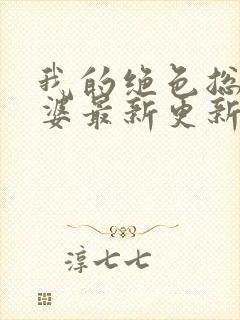 我的绝色总
婆最新更新
淳七七